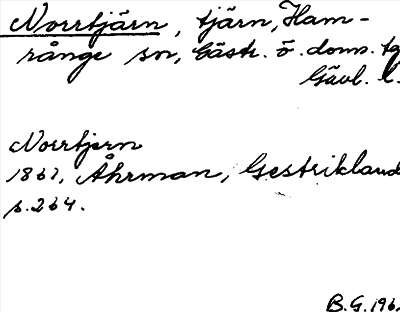 Norrtjärn, tjärn, Ham-
rånge sn, Gästr. ö. doms. tg
Gävl. l.
Norrtjern
1861, Åhrman, Gestrikland
s. 264.
B.G. 196